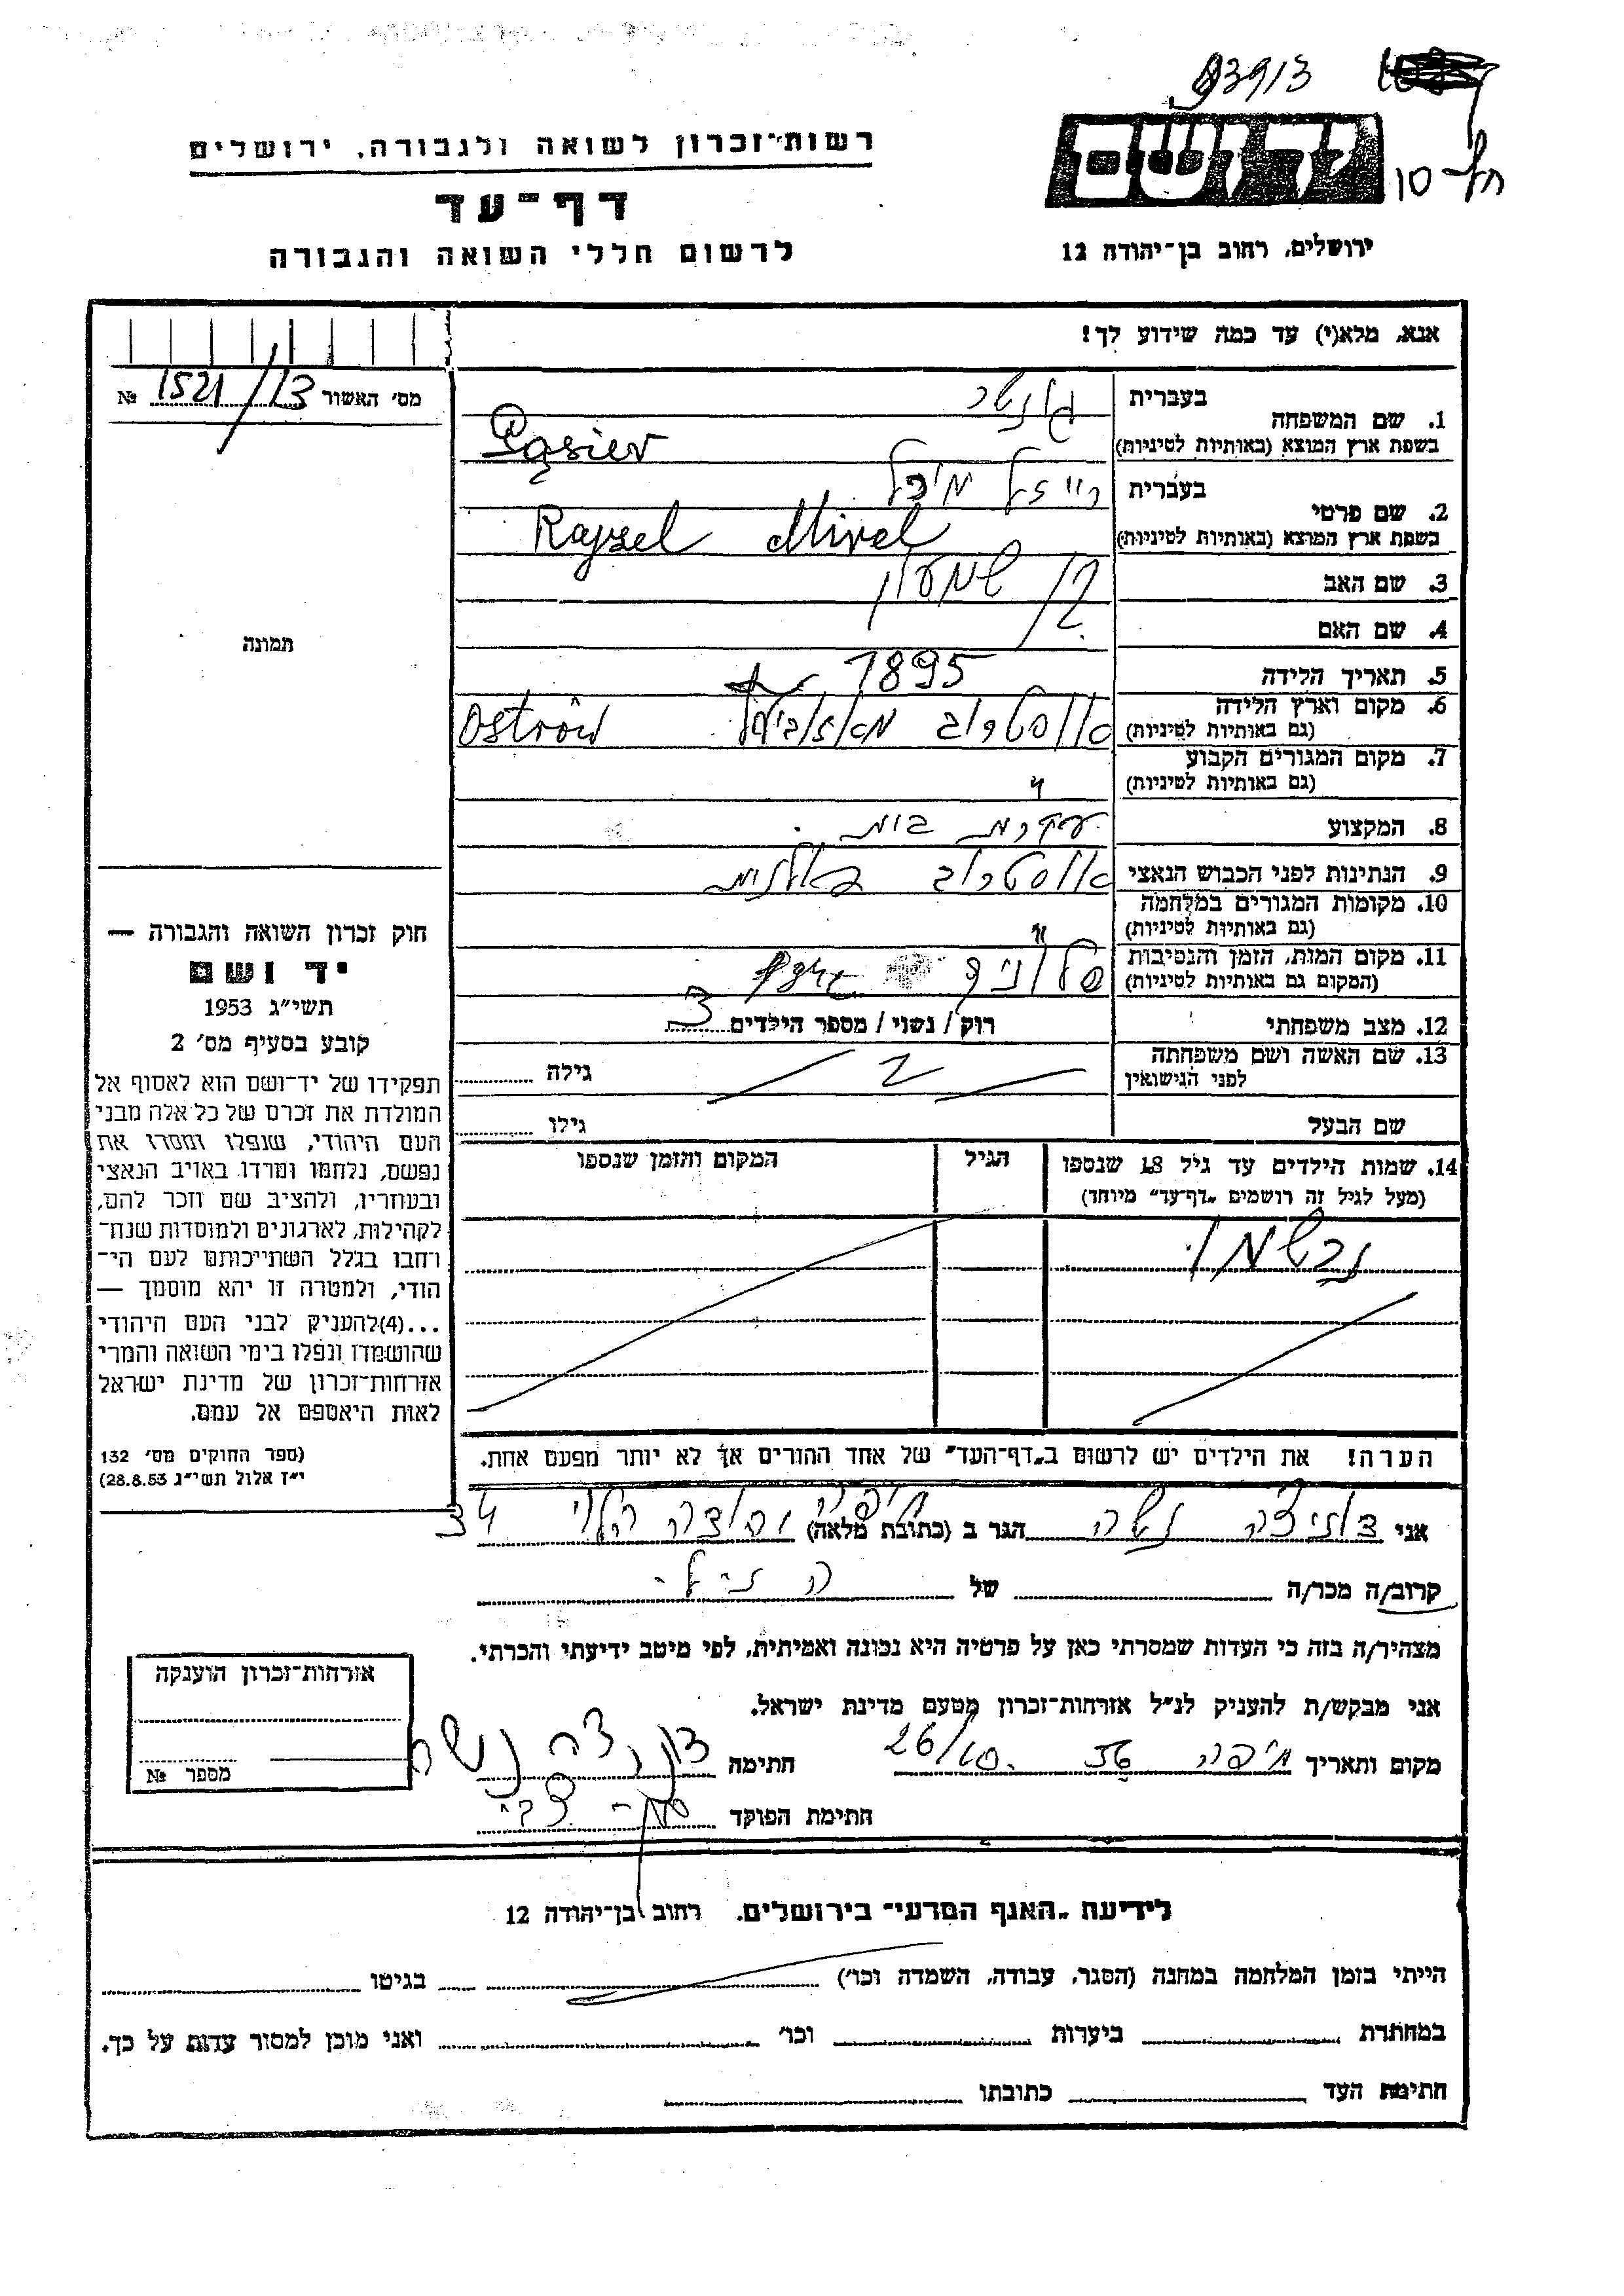 93913
רשות־זכרון לשואה ולגבורה, ירושלים
יד ושם
10
דף־עד
לרשום חללי השואה והגבורה
ירושלים, רחוב בן־יהודה 12
אנא, מלא(י) עד כמה שידוע לך!
מס׳ האשור 1521/13 №
1. שם המשפחה
בעברית
בשפת ארץ המוצא (באותיות לטיניות)
2. שם פרטי
בעברית רייזל מירל
בשפת ארץ המוצא (באותיות לטיניות) Rajzel Mirel
3. שם האב שמעון
4. שם האם
5. תאריך הלידה 1895
6. מקום וארץ הלידה
(גם באותיות לטיניות) אוסטרוב מאזוביצק Ostrów
7. מקום המגורים הקבוע
(גם באותיות לטיניות) "
8. המקצוע עקרת בית
9. הנתינות לפני הכבוש הנאצי אוסטרוב פולנית
10. מקומות המגורים במלחמה
(גם באותיות לטיניות) "
11. מקום המות, הזמן והנסיבות
(המקום גם באותיות לטיניות) סלונים
12. מצב משפחתי רוק / נשוי / מספר הילדים 3
13. שם האשה ושם משפחתה
לפני הנישואין
גילה
שם הבעל
גילו
14. שמות הילדים עד גיל 18 שנספו
(מעל לגיל זה רושמים „דף־עד" מיוחד)
הגיל
המקום והזמן שנספו
נרשמו
הערה! את הילדים יש לרשום ב„דף־העד" של אחד ההורים אך לא יותר מפעם אחת.
תמונה
חוק זכרון השואה והגבורה —
יד ושם
תשי״ג 1953
קובע בסעיף מס׳ 2
תפקידו של יד־ושם הוא לאסוף אל
המולדת את זכרם של כל אלה מבני
העם היהודי, שנפלו ומסרו את
נפשם, נלחמו ומרדו באויב הנאצי
ובעוזריו, ולהציב שם וזכר להם,
לקהילות, לארגונים ולמוסדות שנח־
רחבו בגלל השתייכותם לעם הי־
הודי, ולמטרה זו יהא מוסמך —
...(4)להעניק לבני העם היהודי
שהושמדו ונפלו בימי השואה והמרי
אזרחות־זכרון של מדינת ישראל
לאות היאספם אל עמם.
(ספר החוקים מס׳ 132
י״ז אלול תשי״ג 28.8.53)
אני נשה הגר ב (כתובת מלאה) חיפה יהודה הלוי 34
קרוב/ה מכר/ה של הנ״ל
מצהיר/ה בזה כי העדות שמסרתי כאן על פרטיה היא נכונה ואמיתית, לפי מיטב ידיעתי והכרתי.
אני מבקש/ת להעניק לנ״ל אזרחות־זכרון מטעם מדינת ישראל.
מקום ותאריך חיפה 26/10 56 חתימה נשה
חתימת הפוקד
אזרחות־זכרון הוענקה
מספר №
לידיעת „האגף המדעי״ בירושלים, רחוב בן־יהודה 12
הייתי בזמן המלחמה במחנה (הסגר, עבודה, השמדה וכו׳) בגיטו
במחתרת ביערות וכו׳ ואני מוכן למסור עדות על כך.
חתימת העד כתובתו